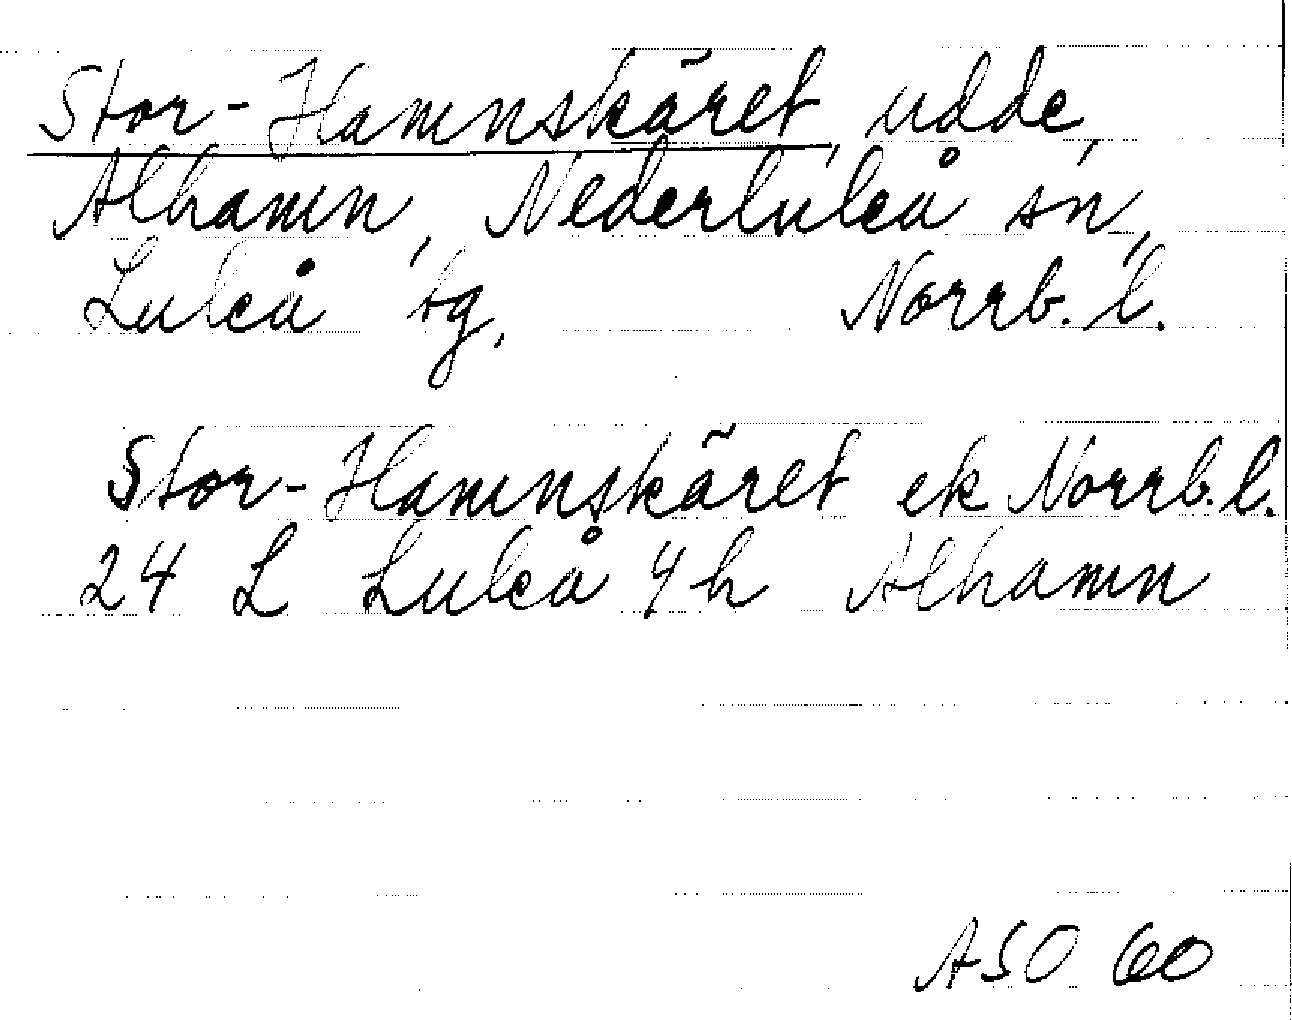 Stor-Hamnskäret, udde,
Alhamn, Nederluleå sn,
Luleå tg, Norrb. l.
Stor-Hamnskäret ek Norrb. l.
24 L Luleå 4h Alhamn
ASO 60